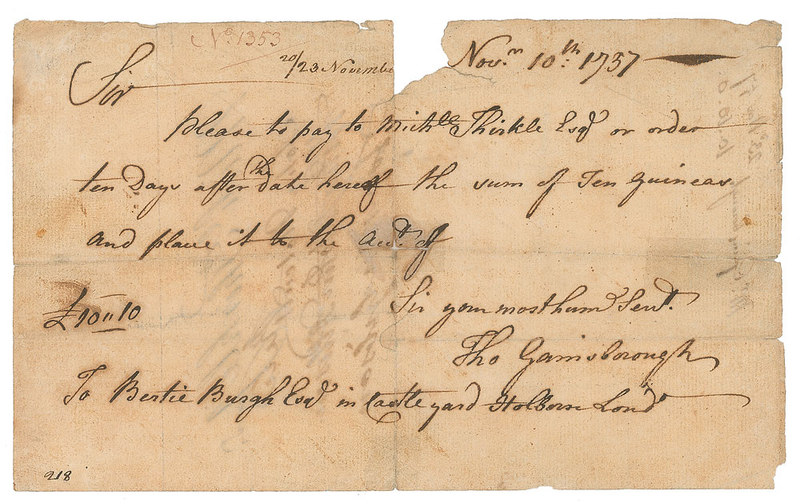 No. 1353
20/23 Novembe
Novm. 10th: 1757
Sir
Please to pay to Michll Thirkle Esqr or order
ten Days after the date hereof the sum of Ten guineas
and place it to the Acct. of
£10"10
Sir your most humd Servt.
Tho Gainsborough
To Bertie Burgh Esqr in Castle yard Holborn Lond
218